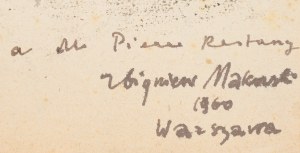 a M. Pierre Restany
Zbigniew Makowski
1960
Warszawa